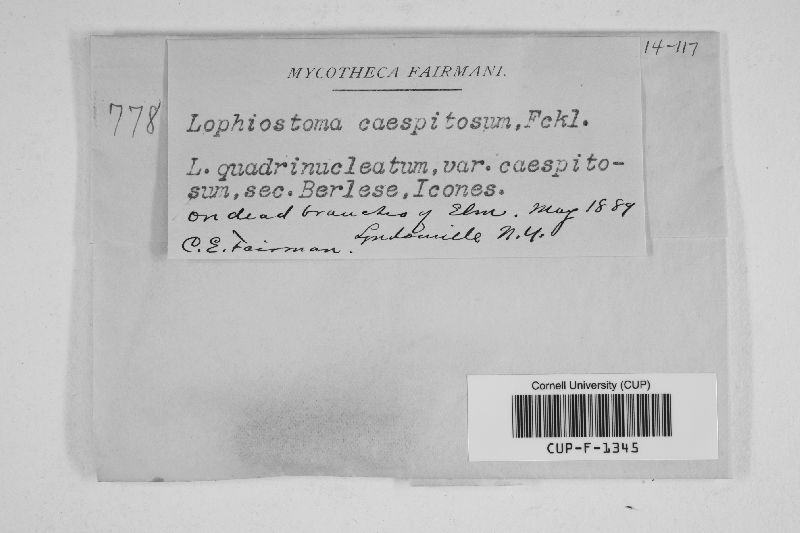 14-117
MYCOTHECA FAIRMANI.
778
Lophiostoma caespitosum, Fckl.
L. quadrinucleatum, var. caespito-
sum, sec. Berlese, Icones.
on dead branches of Elm. May 1889
Lyndonville N.Y.
C. E. Fairman.
Cornell University (CUP)
CUP-F-1345